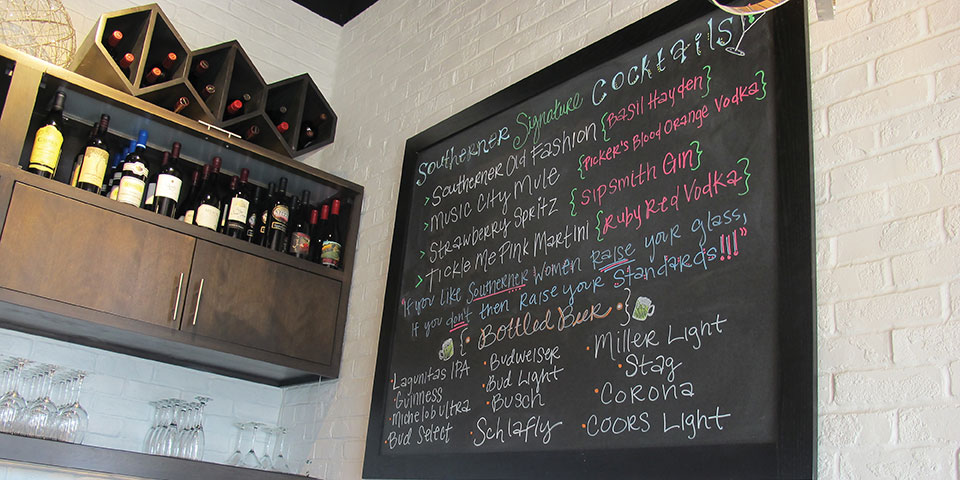 Southerner Signature Cocktails
> Southerner Old Fashion {Basil Hayden}
> Music City Mule {Picker's Blood Orange Vodka}
> Strawberry Spritz {Sipsmith Gin}
> Tickle Me Pink Martini {Ruby Red Vodka}
"If you like Southerner Women Raise your glass,
If you don't then Raise your Standards!!!"
{• Bottled Beer •}
• Lagunitas IPA
• Guinness
• Michelob Ultra
• Bud Select
• Budweiser
• Bud Light
• Busch
• Schlafly
• Miller Light
• Stag
• Corona
• Coors Light